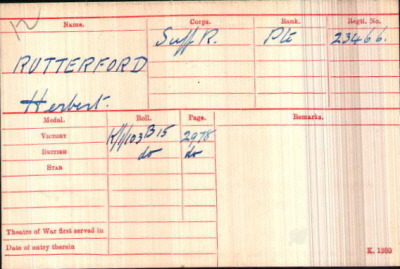 Name. Corps. Rank. Regtl. No.
Suff. R. Pte 23466.
RUTTERFORD
Herbert.
Medal. Roll. Page. Remarks.
VICTORY K/1/103 B 15 2978
BRITISH do do
STAR
Theatre of War first served in
Date of entry therein
K. 1380